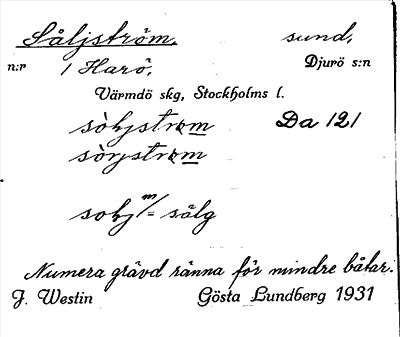 Såljström, sund,
n:r 1 Harö, Djurö s:n
Värmdö skg, Stockholms l.
sòljstrɷm Da 121
sòrjstrɷm
solj m/= sälg
Numera grävd ränna för mindre båtar.
J. Westin Gösta Lundberg 1931